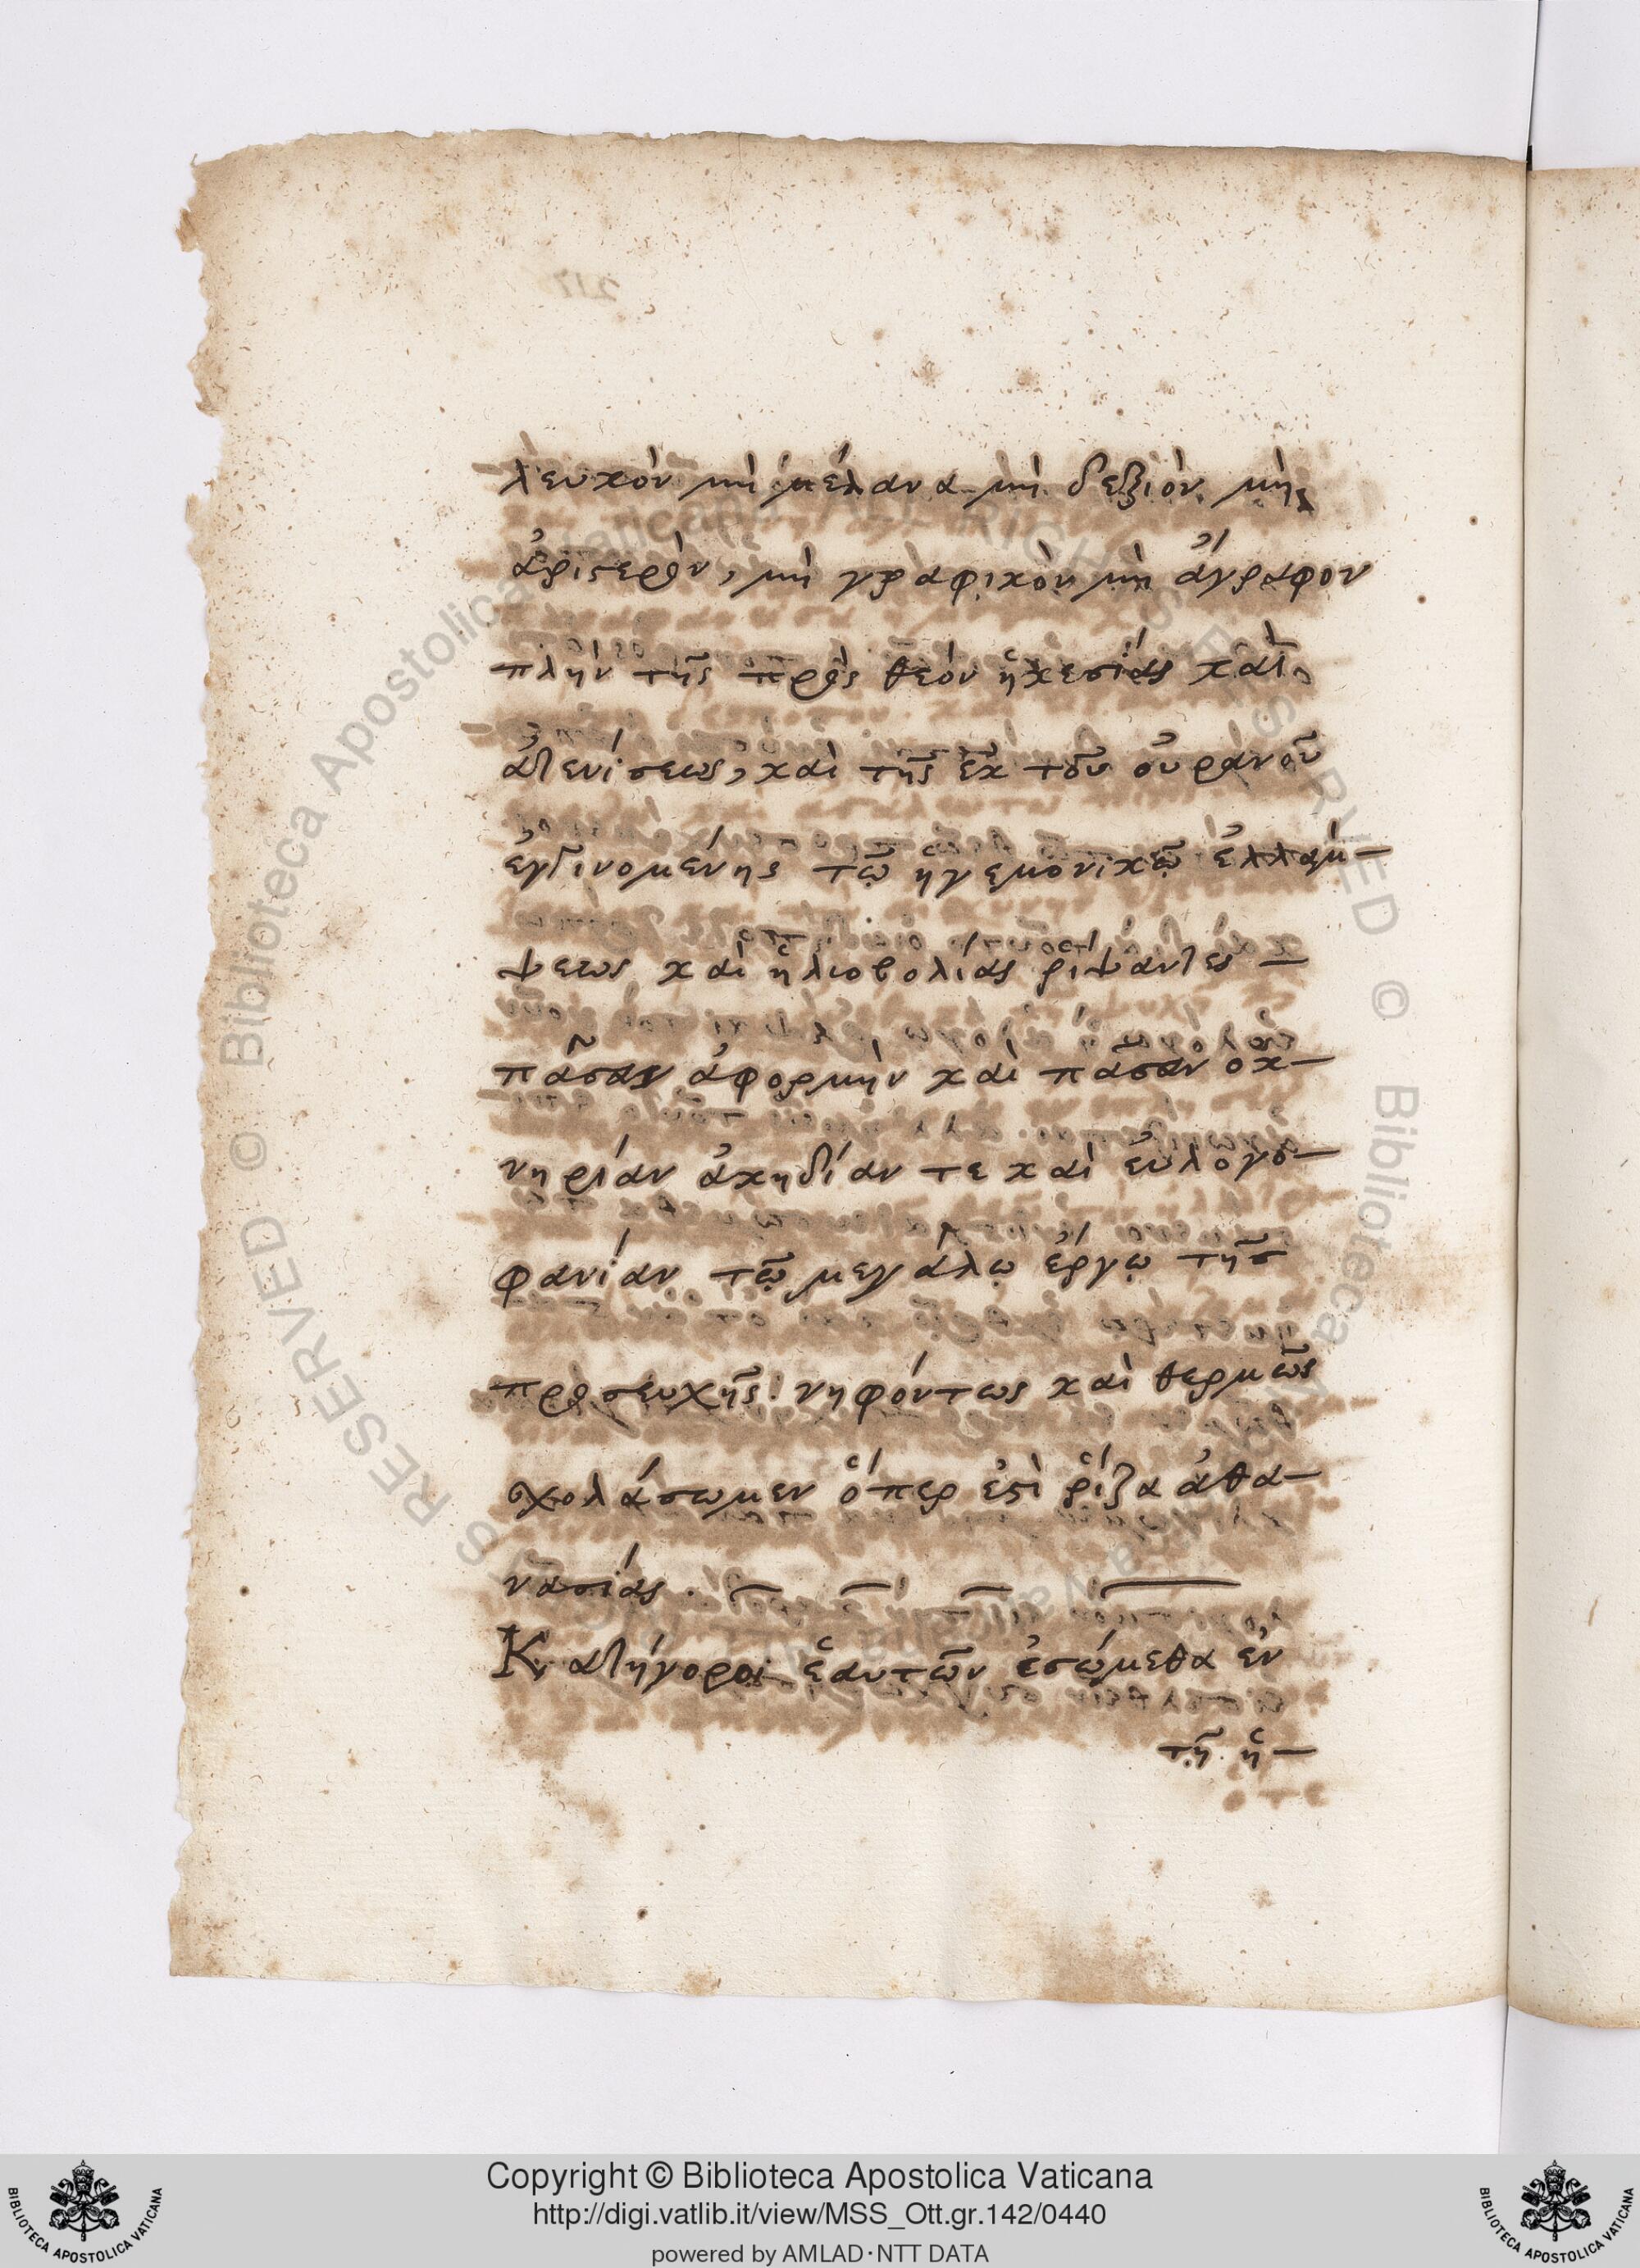 λευκὸν μὴ μέλανα μὴ δεξιὸν μὴ
ἀριστερὸν, μὴ γραφικὸν μὴ ἄγραφον
πλὴν τῆς πρὸς θεὸν ἡκεσίας καὶ
ἀτενίσεως, καὶ τῆς ἐκ τοῦ οὐρανοῦ
ἐγγινομένης τῷ ἡγεμονικῷ ἐλλάμ-
ψεως καὶ ἡλιοβολίας ῥίψαντες
πᾶσαν ἀφορμὴν καὶ πᾶσαν ὀκ-
νηρίαν ἀκηδίαν τε καὶ εὐλογο-
φανίαν τῷ μεγάλῳ ἔργῳ τῆς
προσευχῆς. νηφόντως καὶ θερμῶς
σχολάσωμεν ὅπερ ἐστὶ ῥίζα ἀθα-
νασίας.
Κατήγοροι ἑαυτῶν ἐσώμεθα ἐν
τῇ ἡ-
217
Copyright © Biblioteca Apostolica Vaticana
http://digi.vatlib.it/view/MSS_Ott.gr.142/0440
powered by AMLAD·NTT DATA
BIBLIOTECA APOSTOLICA VATICANA
BIBLIOTECA APOSTOLICA VATICANA